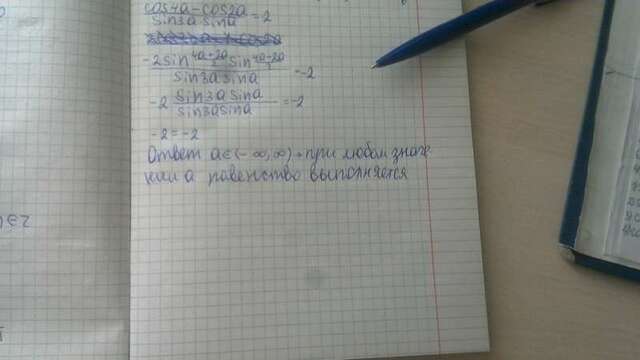 cos4a-cos2a / sin3a sina = 2
-2sin 4a+2a/2 sin 4a-2a/2 / sin3a sina = -2
-2 sin3a sina / sin3a sina = -2
-2=-2
Ответ a∈(-∞,∞) при любом значе-
нии a равенство выполняется